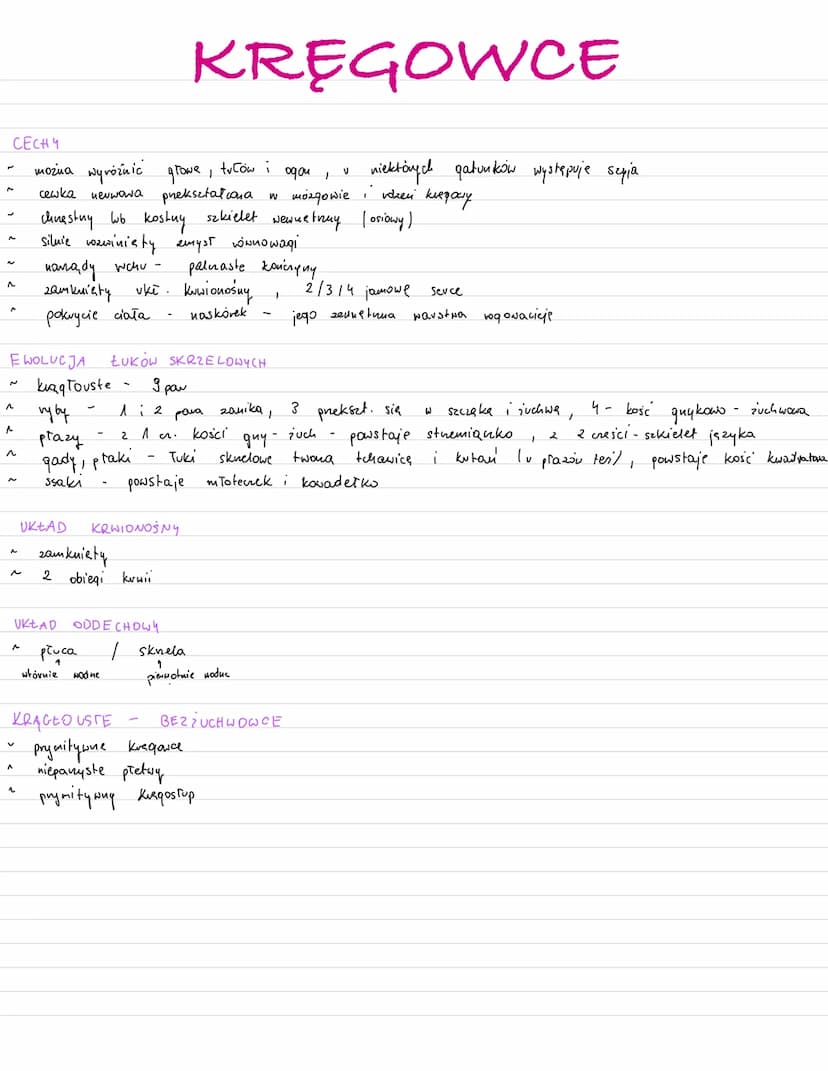 KRĘGOWCE
CECHY
~ można wyróżnić głowę, tułów i ogon, u niektórych gatunków występuje szyja
~ cewka nerwowa przekształcona w mózgowie i rdzeń kręgowy
~ chrzęstny lub kostny szkielet wewnętrzny (osiowy)
~ silnie rozwinięty zmysł równowagi
~ narządy ruchu - palczaste kończyny
~ zamknięty ukł. krwionośny, 2/3/4 jamowe serce
~ pokrycie ciała - naskórek - jego zewnętrzna warstwa rogowacieje
EWOLUCJA ŁUKÓW SKRZELOWYCH
~ krągłouste - 9 par
~ ryby - 1 i 2 para zanika, 3 przekszt. się w szczękę i żuchwę, 4 - kość gnykowo - żuchwowa
~ płazy - z 1 cz. kości gny - żuch - powstaje strzemiączko, z 2 części - szkielet języka
~ gady, ptaki - łuki skrzelowe tworzą tchawicę i krtań (u płazów też), powstaje kość kwadratowa
~ ssaki - powstaje młoteczek i kowadełko
UKŁAD KRWIONOŚNY
~ zamknięty
~ 2 obiegi krwi
UKŁAD ODDECHOWY
~ płuca / skrzela
wtórnie wodne pierwotnie wodne
KRĄGŁOUSTE - BEZŻUCHWOWCE
~ prymitywne kręgowce
~ nieparzyste płetwy
~ prymitywny kręgosłup